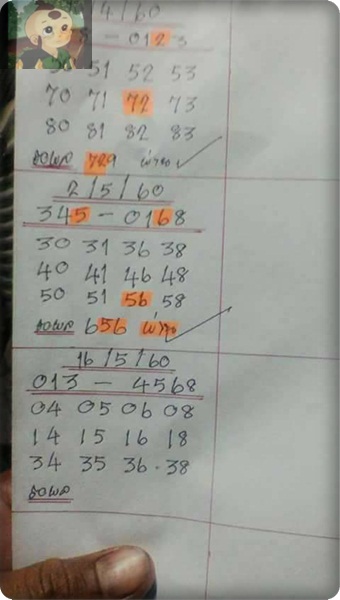 4/60
8 - 0123
50 51 52 53
70 71 72 73
80 81 82 83
729
2/5/60
345 - 0168
30 31 36 38
40 41 46 48
50 51 56 58
656
16/5/60
013 - 4568
04 05 06 08
14 15 16 18
34 35 36 . 38